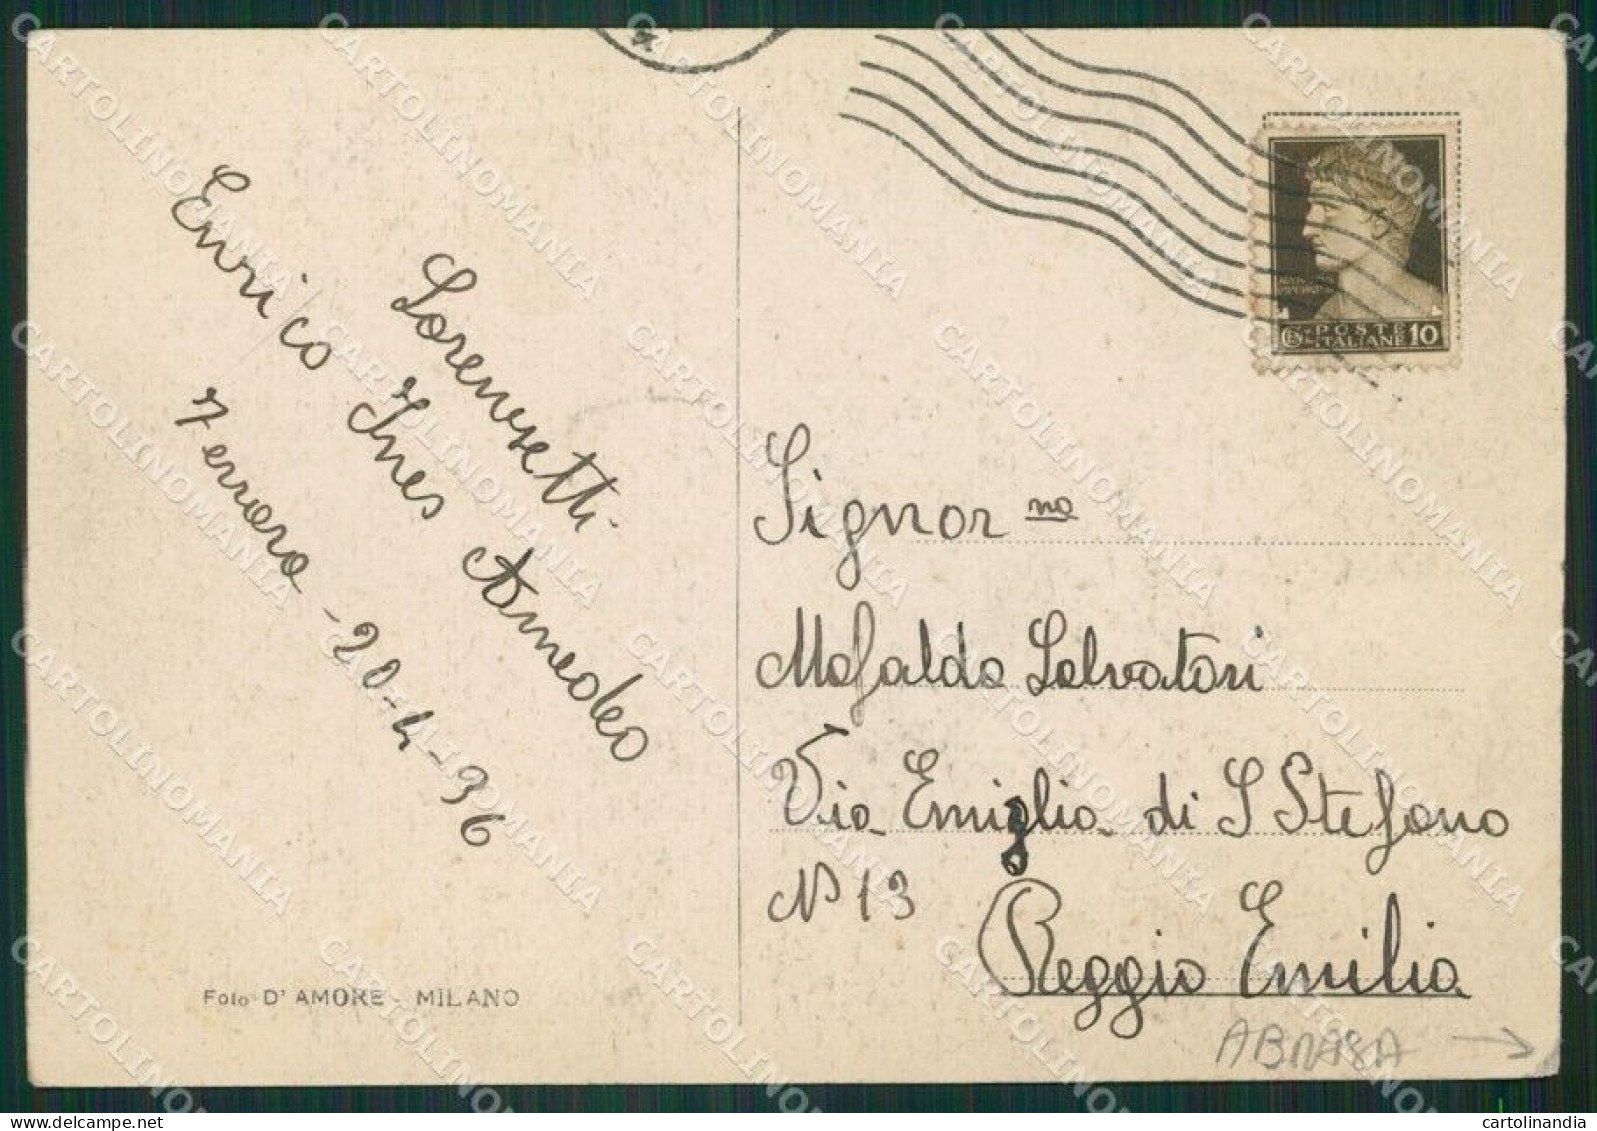 Lorenzetti
Enrico Ines Amedeo
Ferrara - 20-4-36
Foto D'AMORE - MILANO
CENT. POSTE ITALIANE 10
Signor na
Mafalda Salvatori
Via Emiglia di S Stefano
N 13
Reggio Emilia
ABRASA
CARTOLINOMANIA
cartolinandia